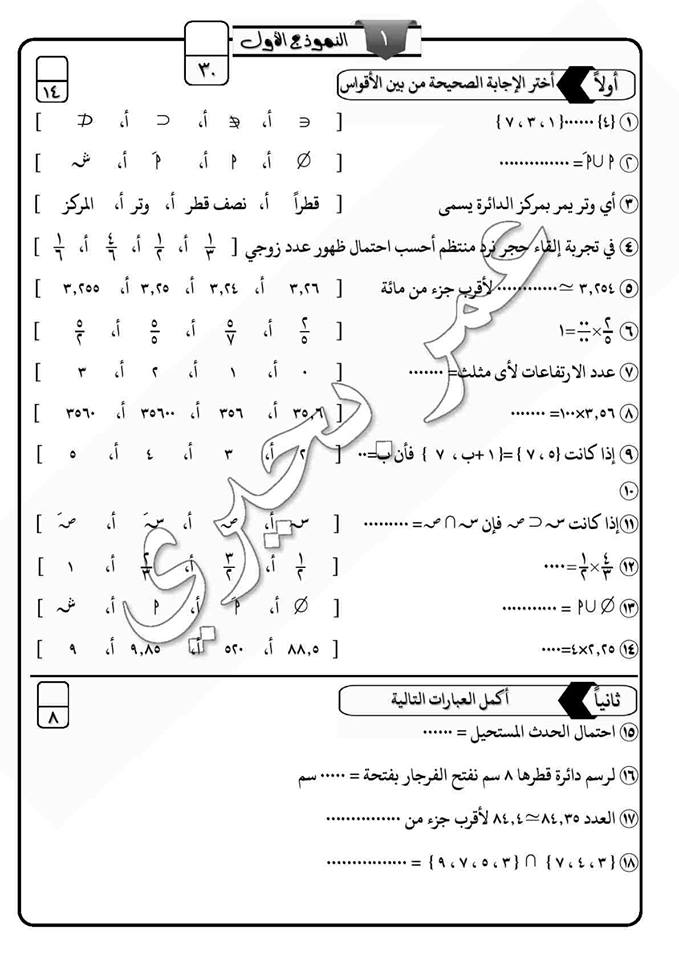 ١ النموذج الأول
٣٠
أولاً أختر الإجابة الصحيحة من بين الأقواس
١٤
① {٤} ······ {١ ، ٣ ، ٧} [ ∋ أ، ∌ أ، ⊂ أ، ⊄ ]
② ٢ ∪ ٢َ = ·············· [ ∅ أ، ٢ أ، ٢َ أ، شـ ]
③ أي وتر يمر بمركز الدائرة يسمى [ قطراً أ، نصف قطر أ، وتر أ، المركز ]
④ في تجربة إلقاء حجر نرد منتظم أحسب احتمال ظهور عدد زوجي [ ١/٣ أ، ١/٢ أ، ٤/٦ أ، ١/٦ ]
⑤ ٣,٢٥٤ ≃ ············ لأقرب جزء من مائة [ ٣,٢٦ أ، ٣,٢٤ أ، ٣,٢٥ أ، ٣,٢٥٥ ]
⑥ ٢/٥ × ··/·· = ١ [ ٢/٥ أ، ٥/٧ أ، ٥/٥ أ، ٥/٢ ]
⑦ عدد الارتفاعات لأى مثلث= ······· [ ٠ أ، ١ أ، ٢ أ، ٣ ]
⑧ ٣,٥٦×١٠٠= ······· [ ٣٥,٦ أ، ٣٥٦ أ، ٣٥٦٠٠ أ، ٣٥٦٠ ]
⑨ إذا كانت {٥ ، ٧} = {١+ب ، ٧ } فأن ب=·· [ ٢ أ، ٣ أ، ٤ أ، ٥ ]
⑩
⑪ إذا كانت سـ ⊂ صـ فإن سـ ∩ صـ = ········· [ سـ أ، صـ أ، سـَ أ، صـَ ]
⑫ ٤/٣ × ١/٢ = ···· [ ١/٢ أ، ٣/٢ أ، ٢/٣ أ، ١ ]
⑬ ∅ ∪ ٢ = ··········· [ ∅ أ، ٢َ أ، ٢ أ، شـ ]
⑭ ٢,٢٥×٤=···· [ ٨٨,٥ أ، ٥٢٠ أ، ٩,٨٥ أ، ٩ ]
ثانياً أكمل العبارات التالية
٨
⑮ احتمال الحدث المستحيل = ······
⑯ لرسم دائرة قطرها ٨ سم نفتح الفرجار بفتحة = ····· سم
⑰ العدد ٨٤,٣٥ ≃ ٨٤,٤ لأقرب جزء من ···············
⑱ {٣ ، ٤ ، ٧} ∩ {٣ ، ٥ ، ٧ ، ٩} = ················
عمر بحيري